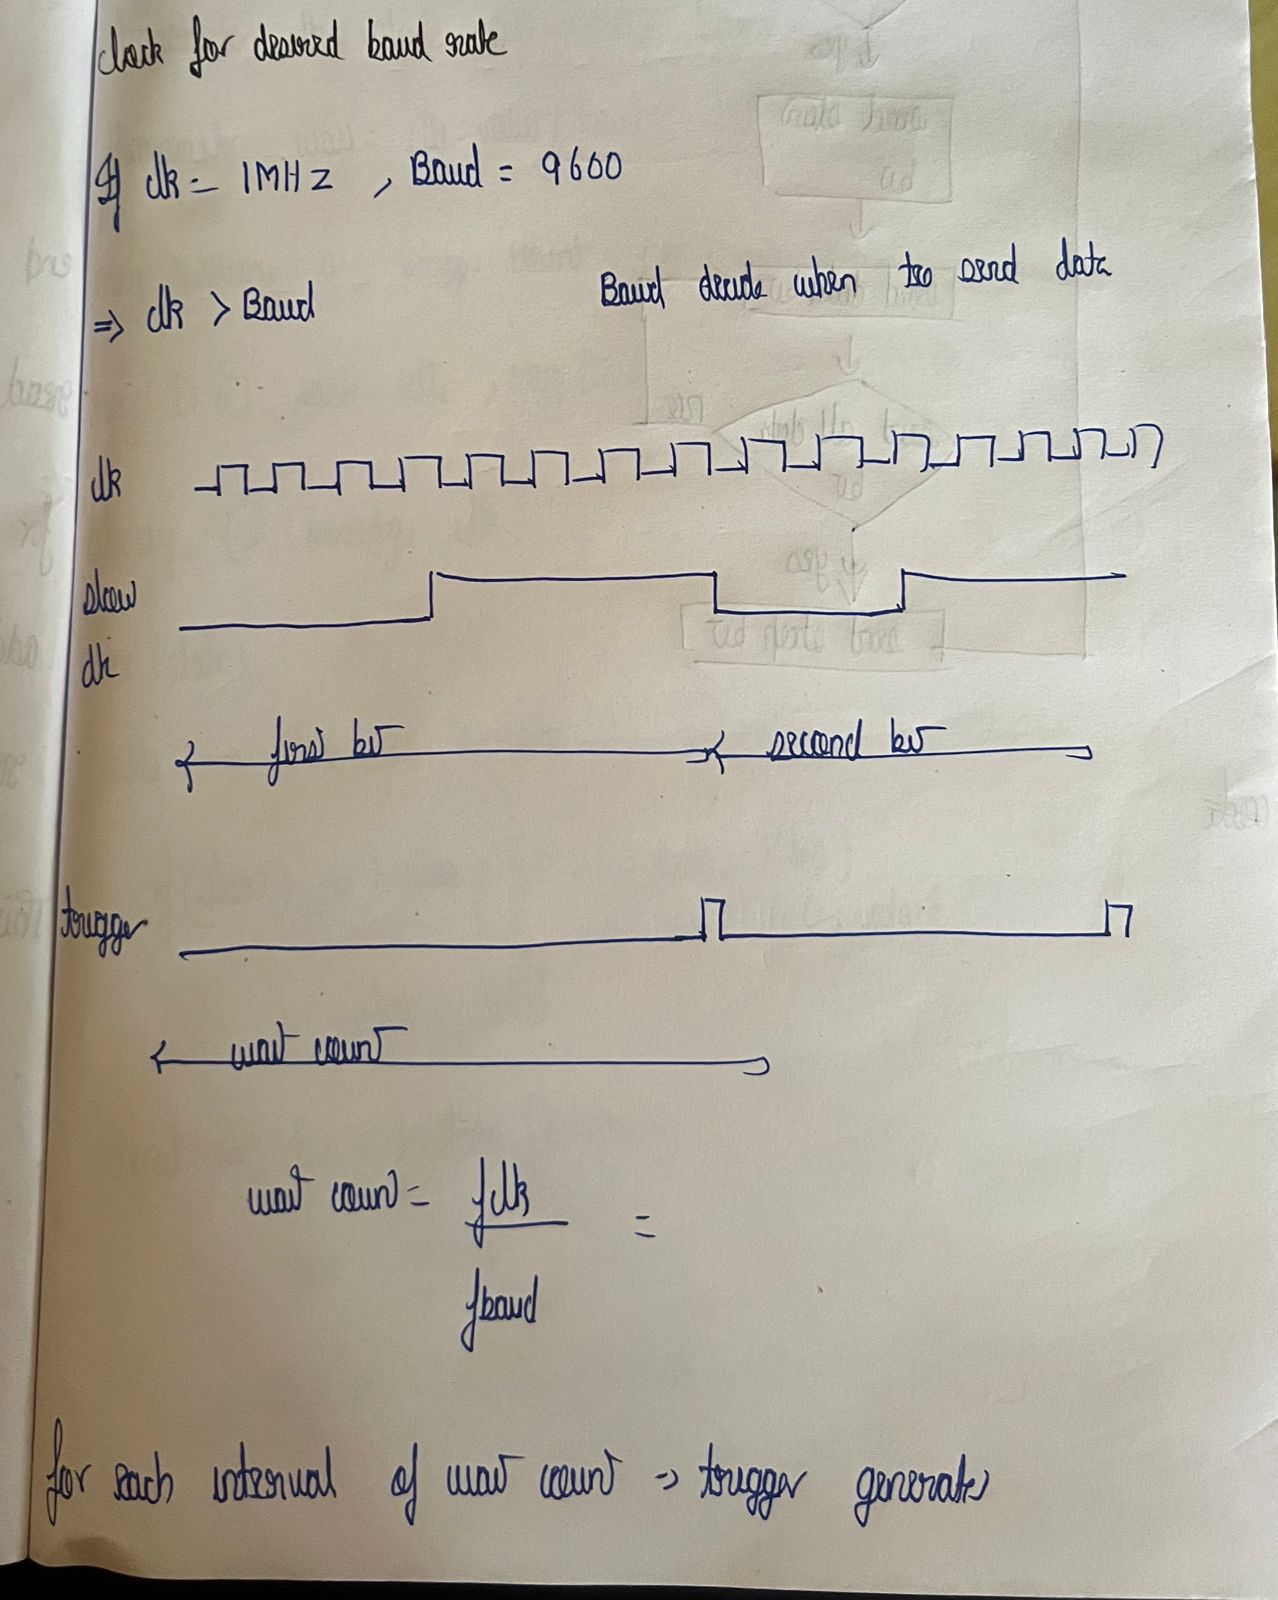 clock for desired baud rate
If clk = 1MHz , Baud = 9600
⇒ clk > Baud
Baud decide when to send data
clk
slow
clk
first bit
second bit
trigger
wait count
wait count = fclk =
fbaud
for each interval of wait count → trigger generates